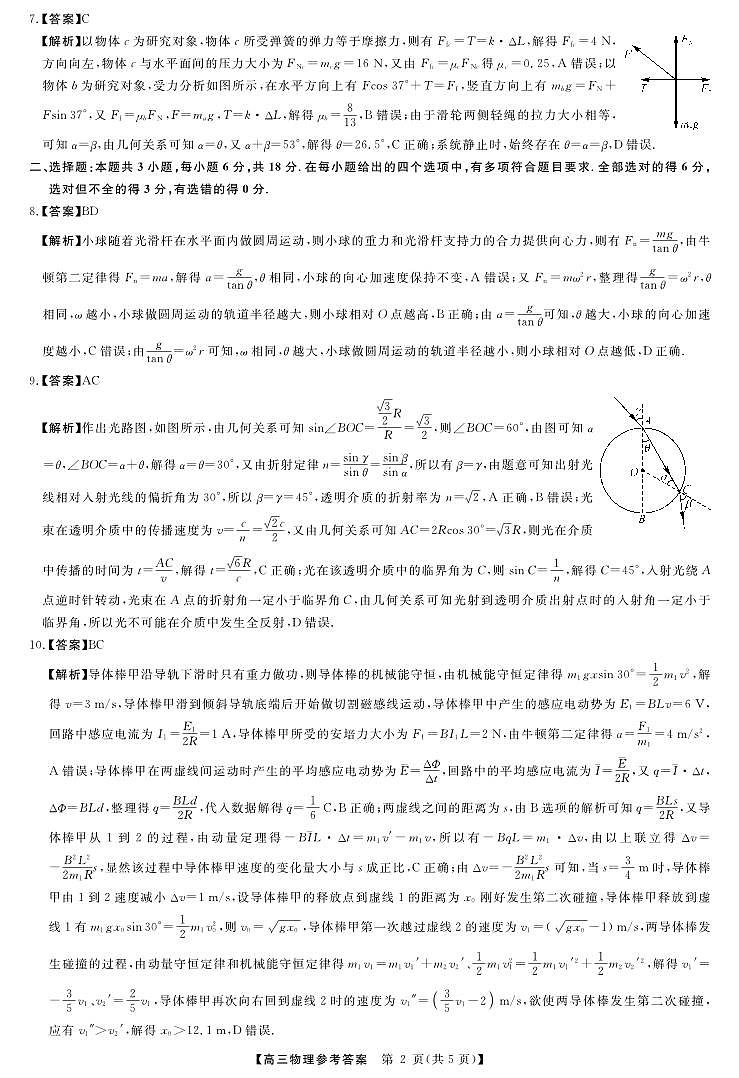 7.【答案】C
【解析】以物体 c 为研究对象,物体 c 所受弹簧的弹力等于摩擦力,则有 Ffc=T=k·ΔL,解得 Ffc=4 N,
方向向左,物体 c 与水平面间的压力大小为 FNc=mcg=16 N,又由 Ffc=μcFNc 得 μc=0.25,A 错误;以
物体 b 为研究对象,受力分析如图所示,在水平方向上有 Fcos 37°+T=Ff,竖直方向上有 mbg=FN+
Fsin 37°,又 Ff=μbFN,F=mag,T=k·ΔL,解得 μb=8/13,B 错误;由于滑轮两侧轻绳的拉力大小相等,
可知 α=β,由几何关系可知 α=θ,又 α+β=53°,解得 θ=26.5°,C 正确;系统静止时,始终存在 θ=α=β,D 错误.
二、选择题:本题共 3 小题,每小题 6 分,共 18 分.在每小题给出的四个选项中,有多项符合题目要求.全部选对的得 6 分,
选对但不全的得 3 分,有选错的得 0 分.
8.【答案】BD
【解析】小球随着光滑杆在水平面内做圆周运动,则小球的重力和光滑杆支持力的合力提供向心力,则有 Fn=mg/tan θ,由牛
顿第二定律得 Fn=ma,解得 a=g/tan θ,θ 相同,小球的向心加速度保持不变,A 错误;又 Fn=mω²r,整理得 g/tan θ=ω²r,θ
相同,ω 越小,小球做圆周运动的轨道半径越大,则小球相对 O 点越高,B 正确;由 a=g/tan θ 可知,θ 越大,小球的向心加速
度越小,C 错误;由 g/tan θ=ω²r 可知,ω 相同,θ 越大,小球做圆周运动的轨道半径越小,则小球相对 O 点越低,D 正确.
9.【答案】AC
【解析】作出光路图,如图所示,由几何关系可知 sin∠BOC=(√3/2 R)/R=√3/2,则∠BOC=60°,由图可知 α
=θ,∠BOC=α+θ,解得 α=θ=30°,又由折射定律 n=sin γ/sin θ=sin β/sin α,所以有 β=γ,由题意可知出射光
线相对入射光线的偏折角为 30°,所以 β=γ=45°,透明介质的折射率为 n=√2,A 正确,B 错误;光
束在透明介质中的传播速度为 v=c/n=√2c/2,又由几何关系可知 AC=2Rcos 30°=√3R,则光在介质
中传播的时间为 t=AC/v,解得 t=√6R/c,C 正确;光在该透明介质中的临界角为 C,则 sin C=1/n,解得 C=45°,入射光绕 A
点逆时针转动,光束在 A 点的折射角一定小于临界角 C,由几何关系可知光射到透明介质出射点时的入射角一定小于
临界角,所以光不可能在介质中发生全反射,D 错误.
10.【答案】BC
【解析】导体棒甲沿导轨下滑时只有重力做功,则导体棒的机械能守恒,由机械能守恒定律得 m₁gxsin 30°=1/2 m₁v²,解
得 v=3 m/s,导体棒甲滑到倾斜导轨底端后开始做切割磁感线运动,导体棒甲中产生的感应电动势为 E₁=BLv=6 V,
回路中感应电流为 I₁=E₁/2R=1 A,导体棒甲所受的安培力大小为 F₁=BI₁L=2 N,由牛顿第二定律得 a=F₁/m₁=4 m/s²,
A 错误;导体棒甲在两虚线间运动时产生的平均感应电动势为 E̅=ΔΦ/Δt,回路中的平均感应电流为 I̅=E̅/2R,又 q=I̅·Δt,
ΔΦ=BLd,整理得 q=BLd/2R,代入数据解得 q=1/6 C,B 正确;两虚线之间的距离为 s,由 B 选项的解析可知 q=BLs/2R,又导
体棒甲从 1 到 2 的过程,由动量定理得-BI̅L·Δt=m₁v′-m₁v,所以有-BqL=m₁·Δv,由以上联立得 Δv=
-B²L²/2m₁R s,显然该过程中导体棒甲速度的变化量大小与 s 成正比,C 正确;由 Δv=-B²L²/2m₁R s 可知,当 s=3/4 m 时,导体棒
甲由 1 到 2 速度减小 Δv=1 m/s,设导体棒甲的释放点到虚线 1 的距离为 x₀ 刚好发生第二次碰撞,导体棒甲释放到虚
线 1 有 m₁gx₀sin 30°=1/2 m₁v₀²,则 v₀=√gx₀,导体棒甲第一次越过虚线 2 的速度为 v₁=(√gx₀-1) m/s,两导体棒发
生碰撞的过程,由动量守恒定律和机械能守恒定律得 m₁v₁=m₁v₁′+m₂v₂′、1/2 m₁v₁²=1/2 m₁v₁′²+1/2 m₂v₂′²,解得 v₁′=
-3/5 v₁、v₂′=2/5 v₁,导体棒甲再次向右回到虚线 2 时的速度为 v₁″=(3/5 v₁-2) m/s,欲使两导体棒发生第二次碰撞,
应有 v₁″>v₂′,解得 x₀>12.1 m,D 错误.
【高三物理参考答案 第 2 页(共 5 页)】